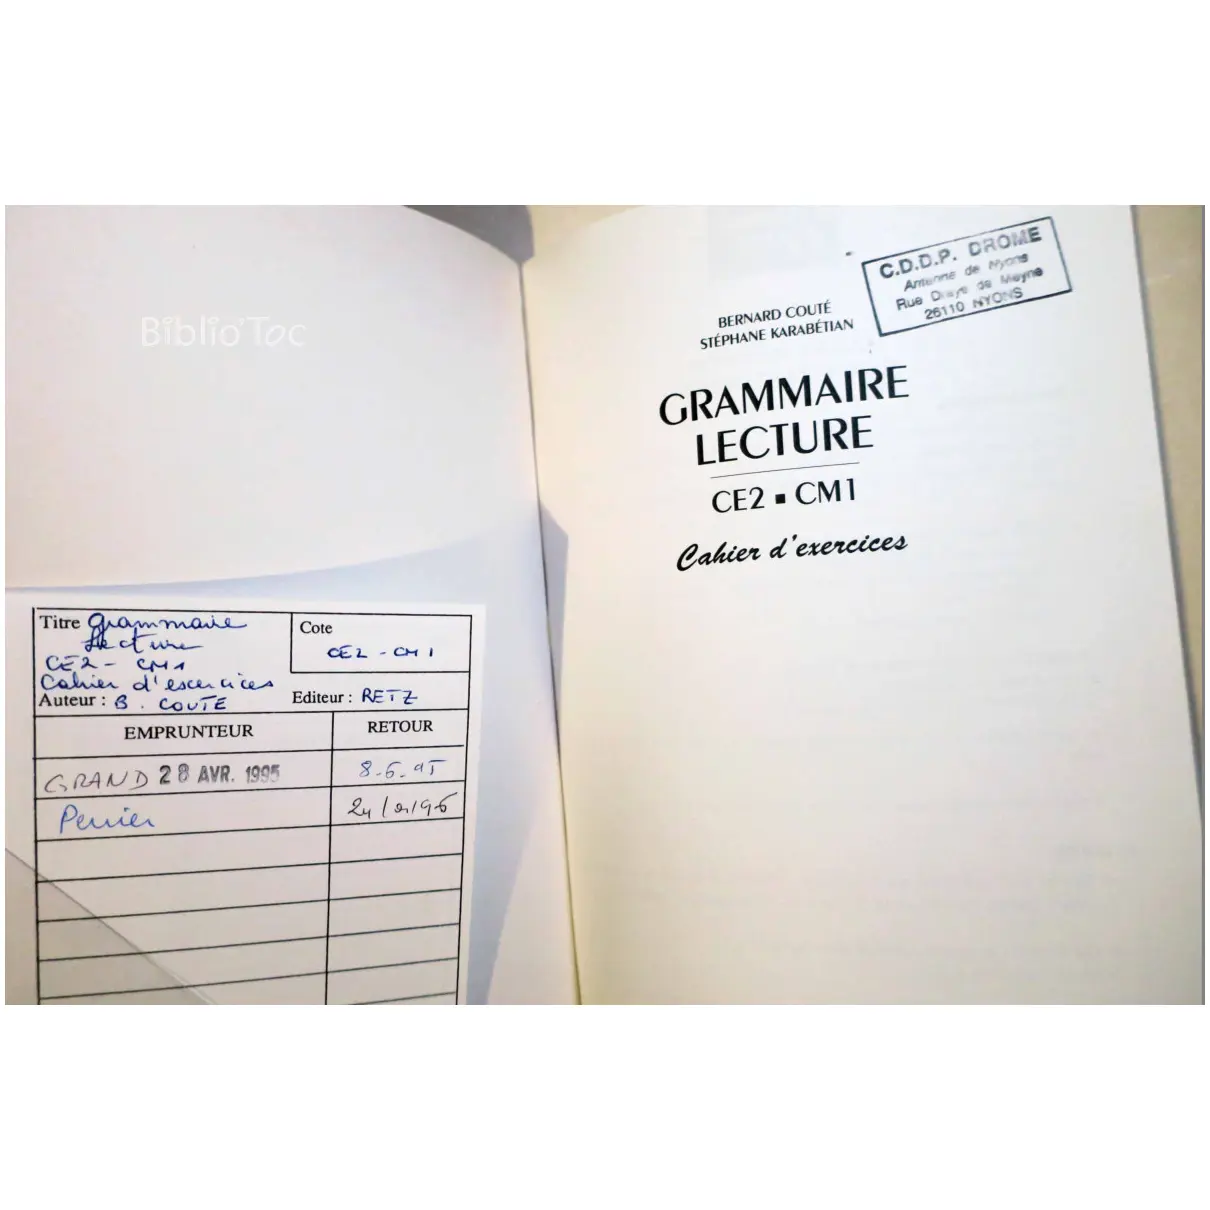 Biblio'Toc
Titre Grammaire
Lecture
CE2 - CM1
Cahier d'exercices
Auteur : B. COUTE
Cote
CE2 - CM1
Editeur : RETZ
EMPRUNTEUR
RETOUR
GRAND 28 AVR. 1995
8.6.95
Perrier
C.D.D.P. DROME
Antenne de Nyons
Rue Draye de Meyne
26110 NYONS
BERNARD COUTÉ
STÉPHANE KARABÉTIAN
GRAMMAIRE
LECTURE
CE2 ▪ CM1
Cahier d'exercices